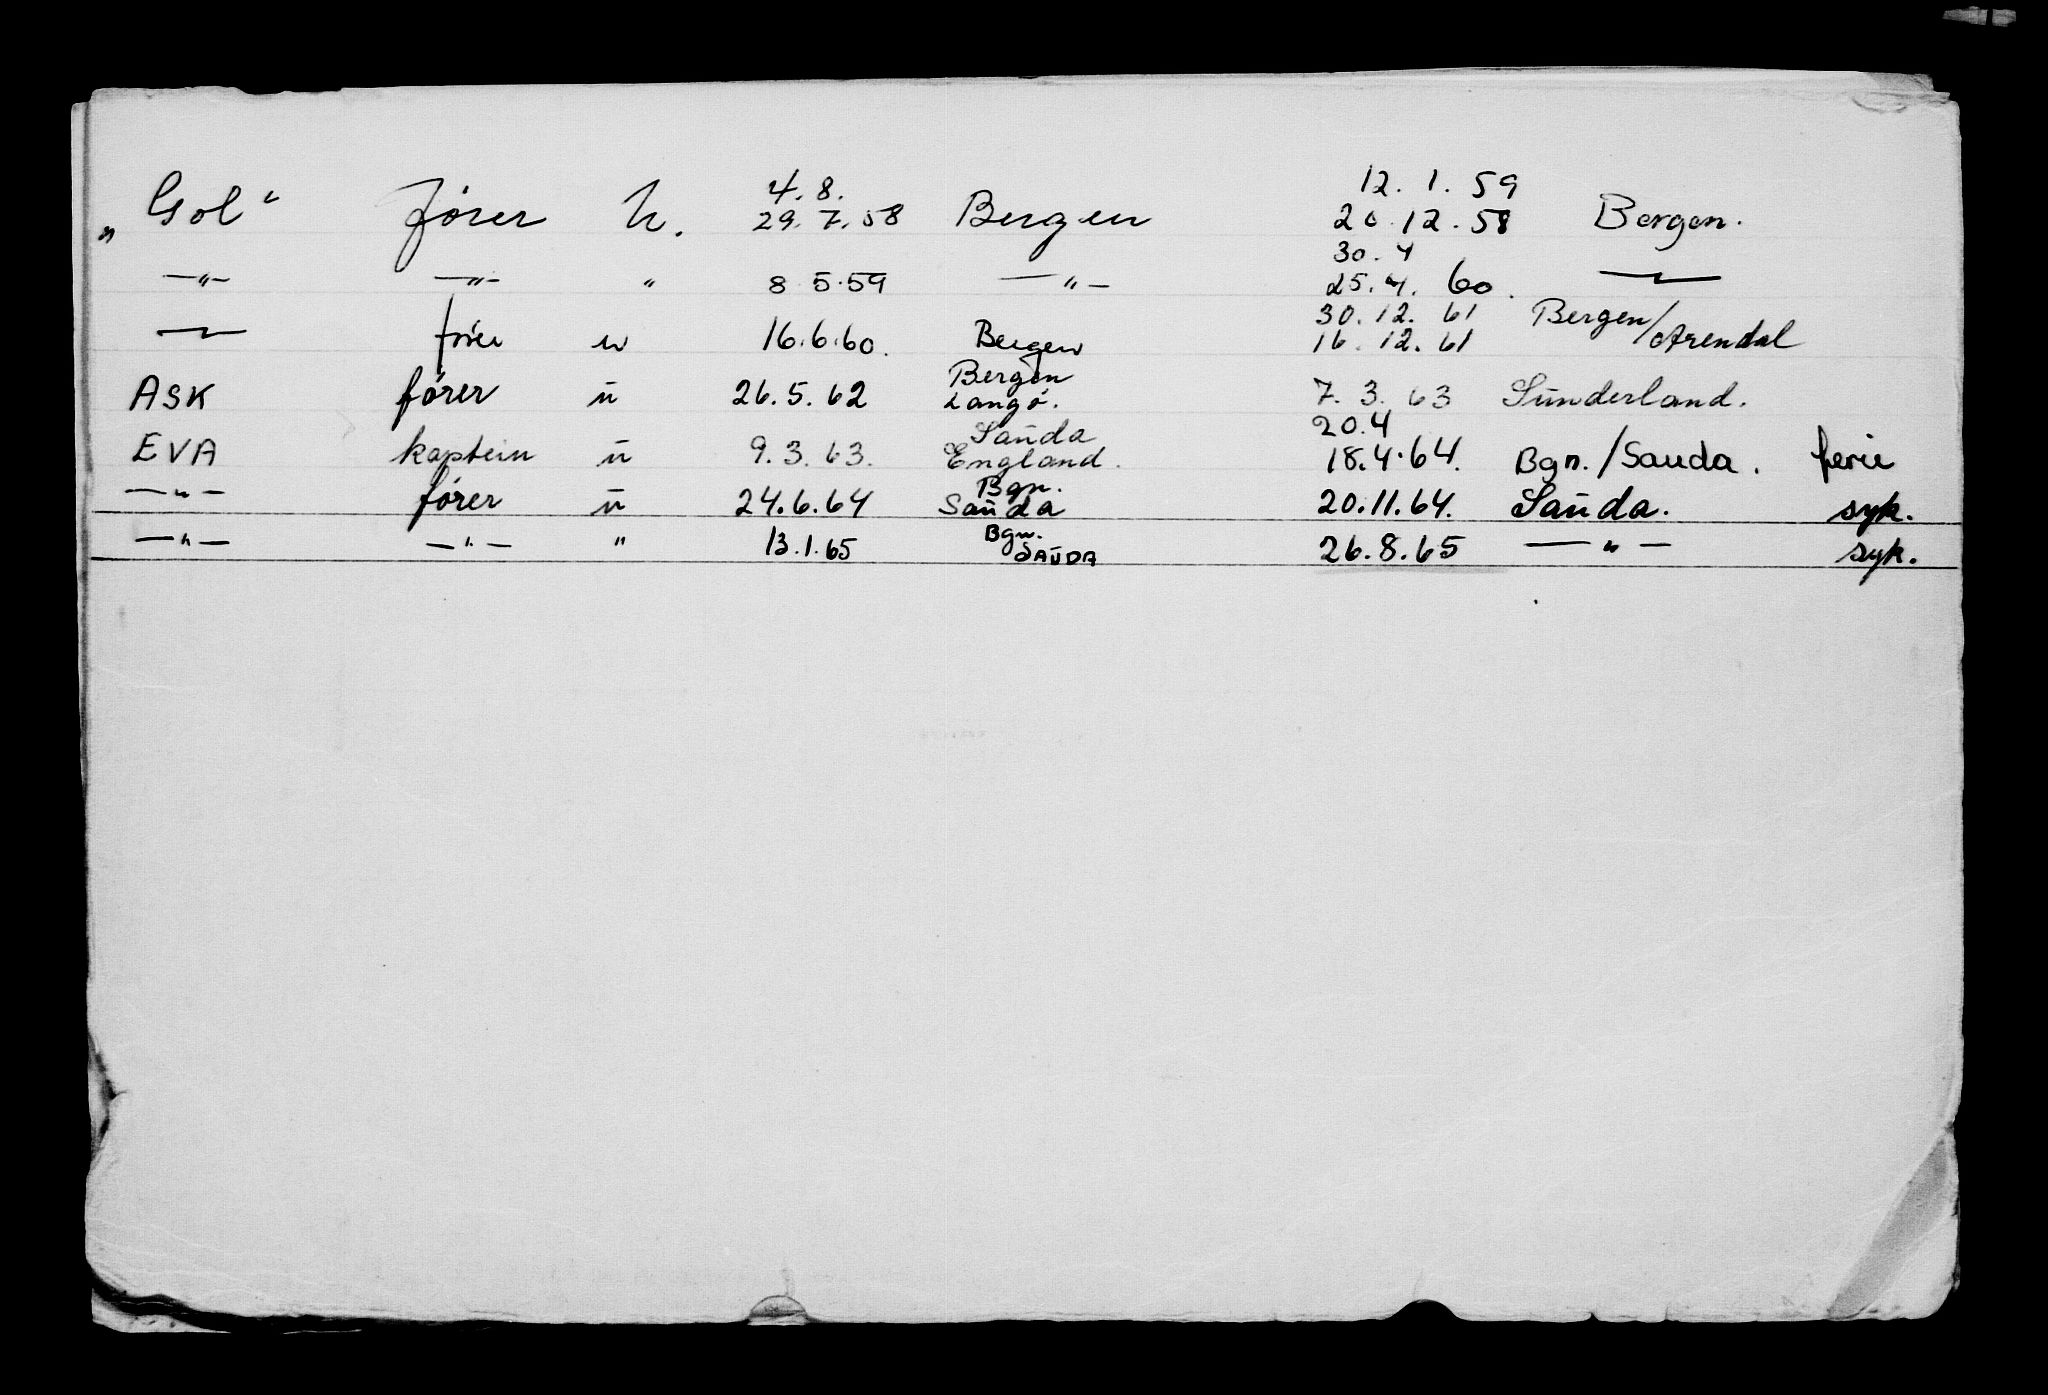 4. 8. 12. 1. 59
„Gol“ fører u. 29. 7. 58 Bergen 20.12.58 Bergen.
30. 4
—„— —„— „ 8 5.59 —„— 25.4. 60. —„—
30.12. 61 Bergen/Arendal
—„— fører u 16.6.60. Bergen 16.12.61
Bergen
ASK fører u 26.5.62 Langø. 7. 3. 63 Sunderland.
Sauda 20.4
EVA kaptein u 9.3.63. England. 18.4.64. Bgn./Sauda. ferie
Bgn.
—„— fører u 24.6.64 Sauda 20.11.64. Sauda. syk.
Bgn.
—„— —„— „ 13.1.65 SAUDA 26.8.65 —„— syk.